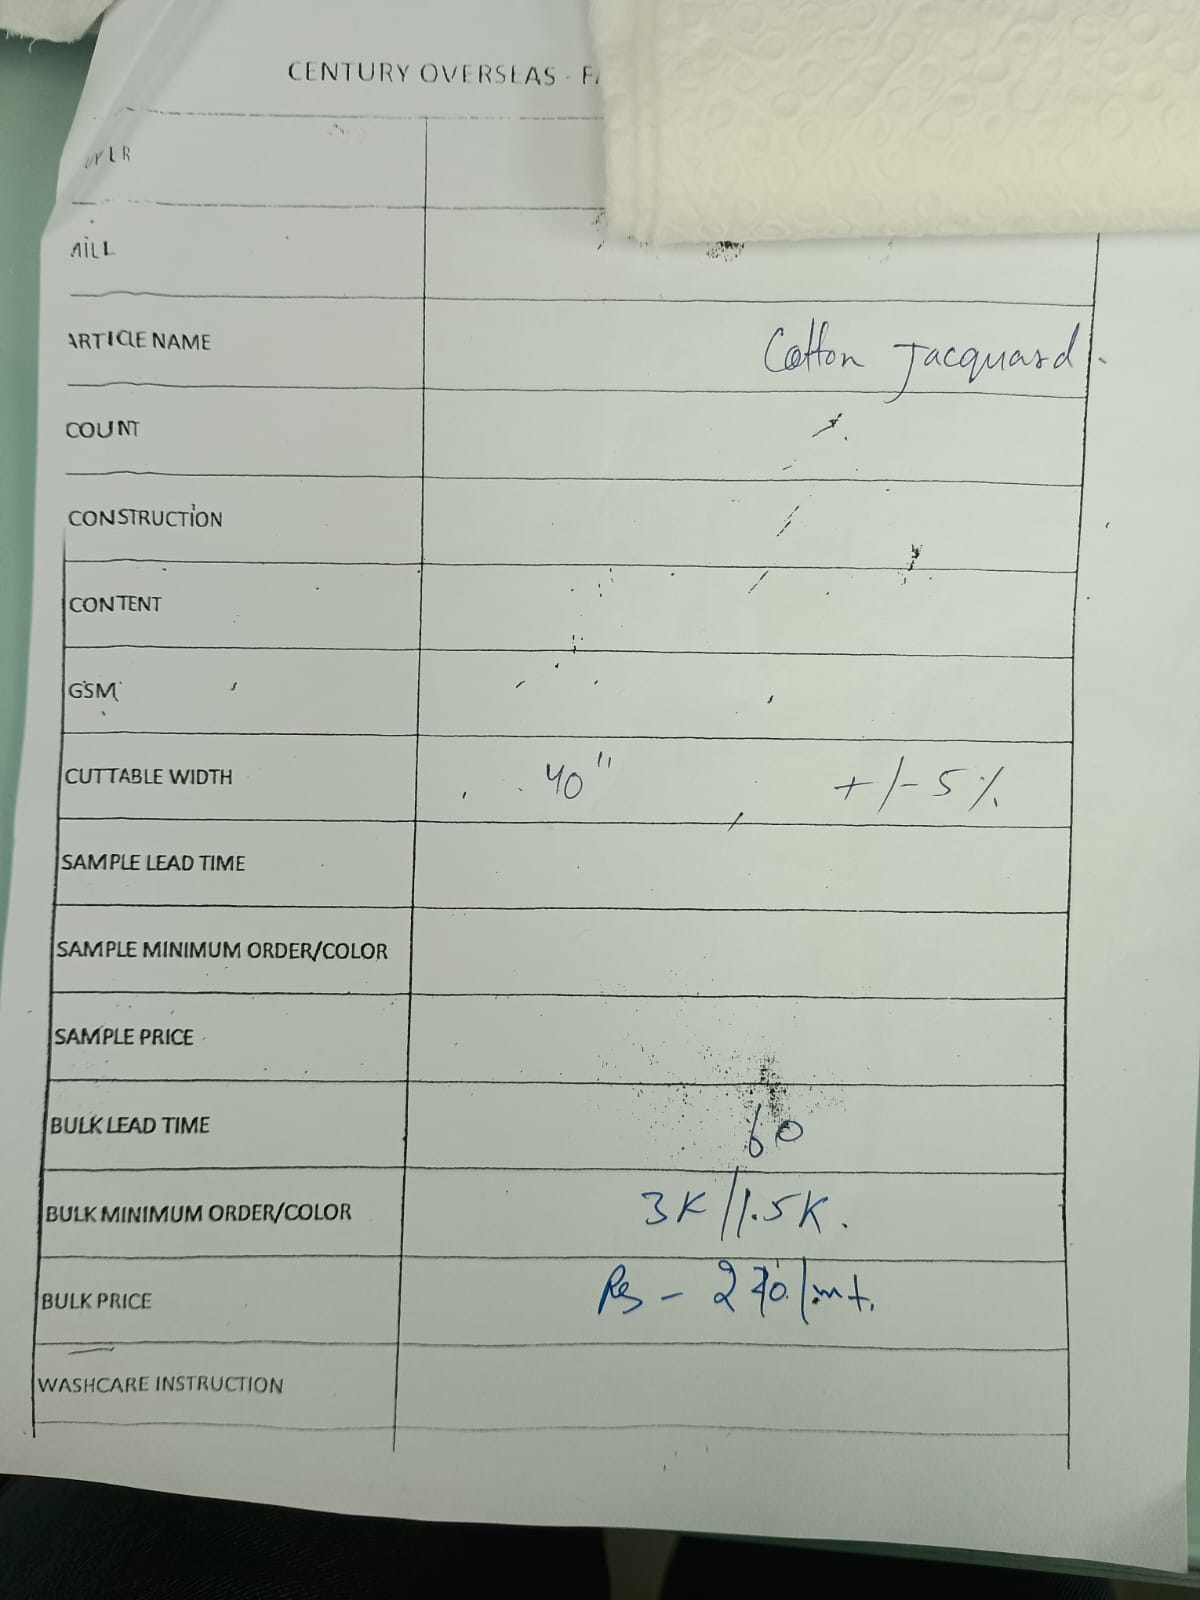 CENTURY OVERSEAS - FA
UYER
MILL
ARTICLE NAME Cotton Jacquard.
COUNT
CONSTRUCTION
CONTENT
GSM
CUTTABLE WIDTH 40" +/- 5%
SAMPLE LEAD TIME
SAMPLE MINIMUM ORDER/COLOR
SAMPLE PRICE
BULK LEAD TIME 60
BULK MINIMUM ORDER/COLOR 3K//1.5K.
BULK PRICE Rs - /mt.
WASHCARE INSTRUCTION